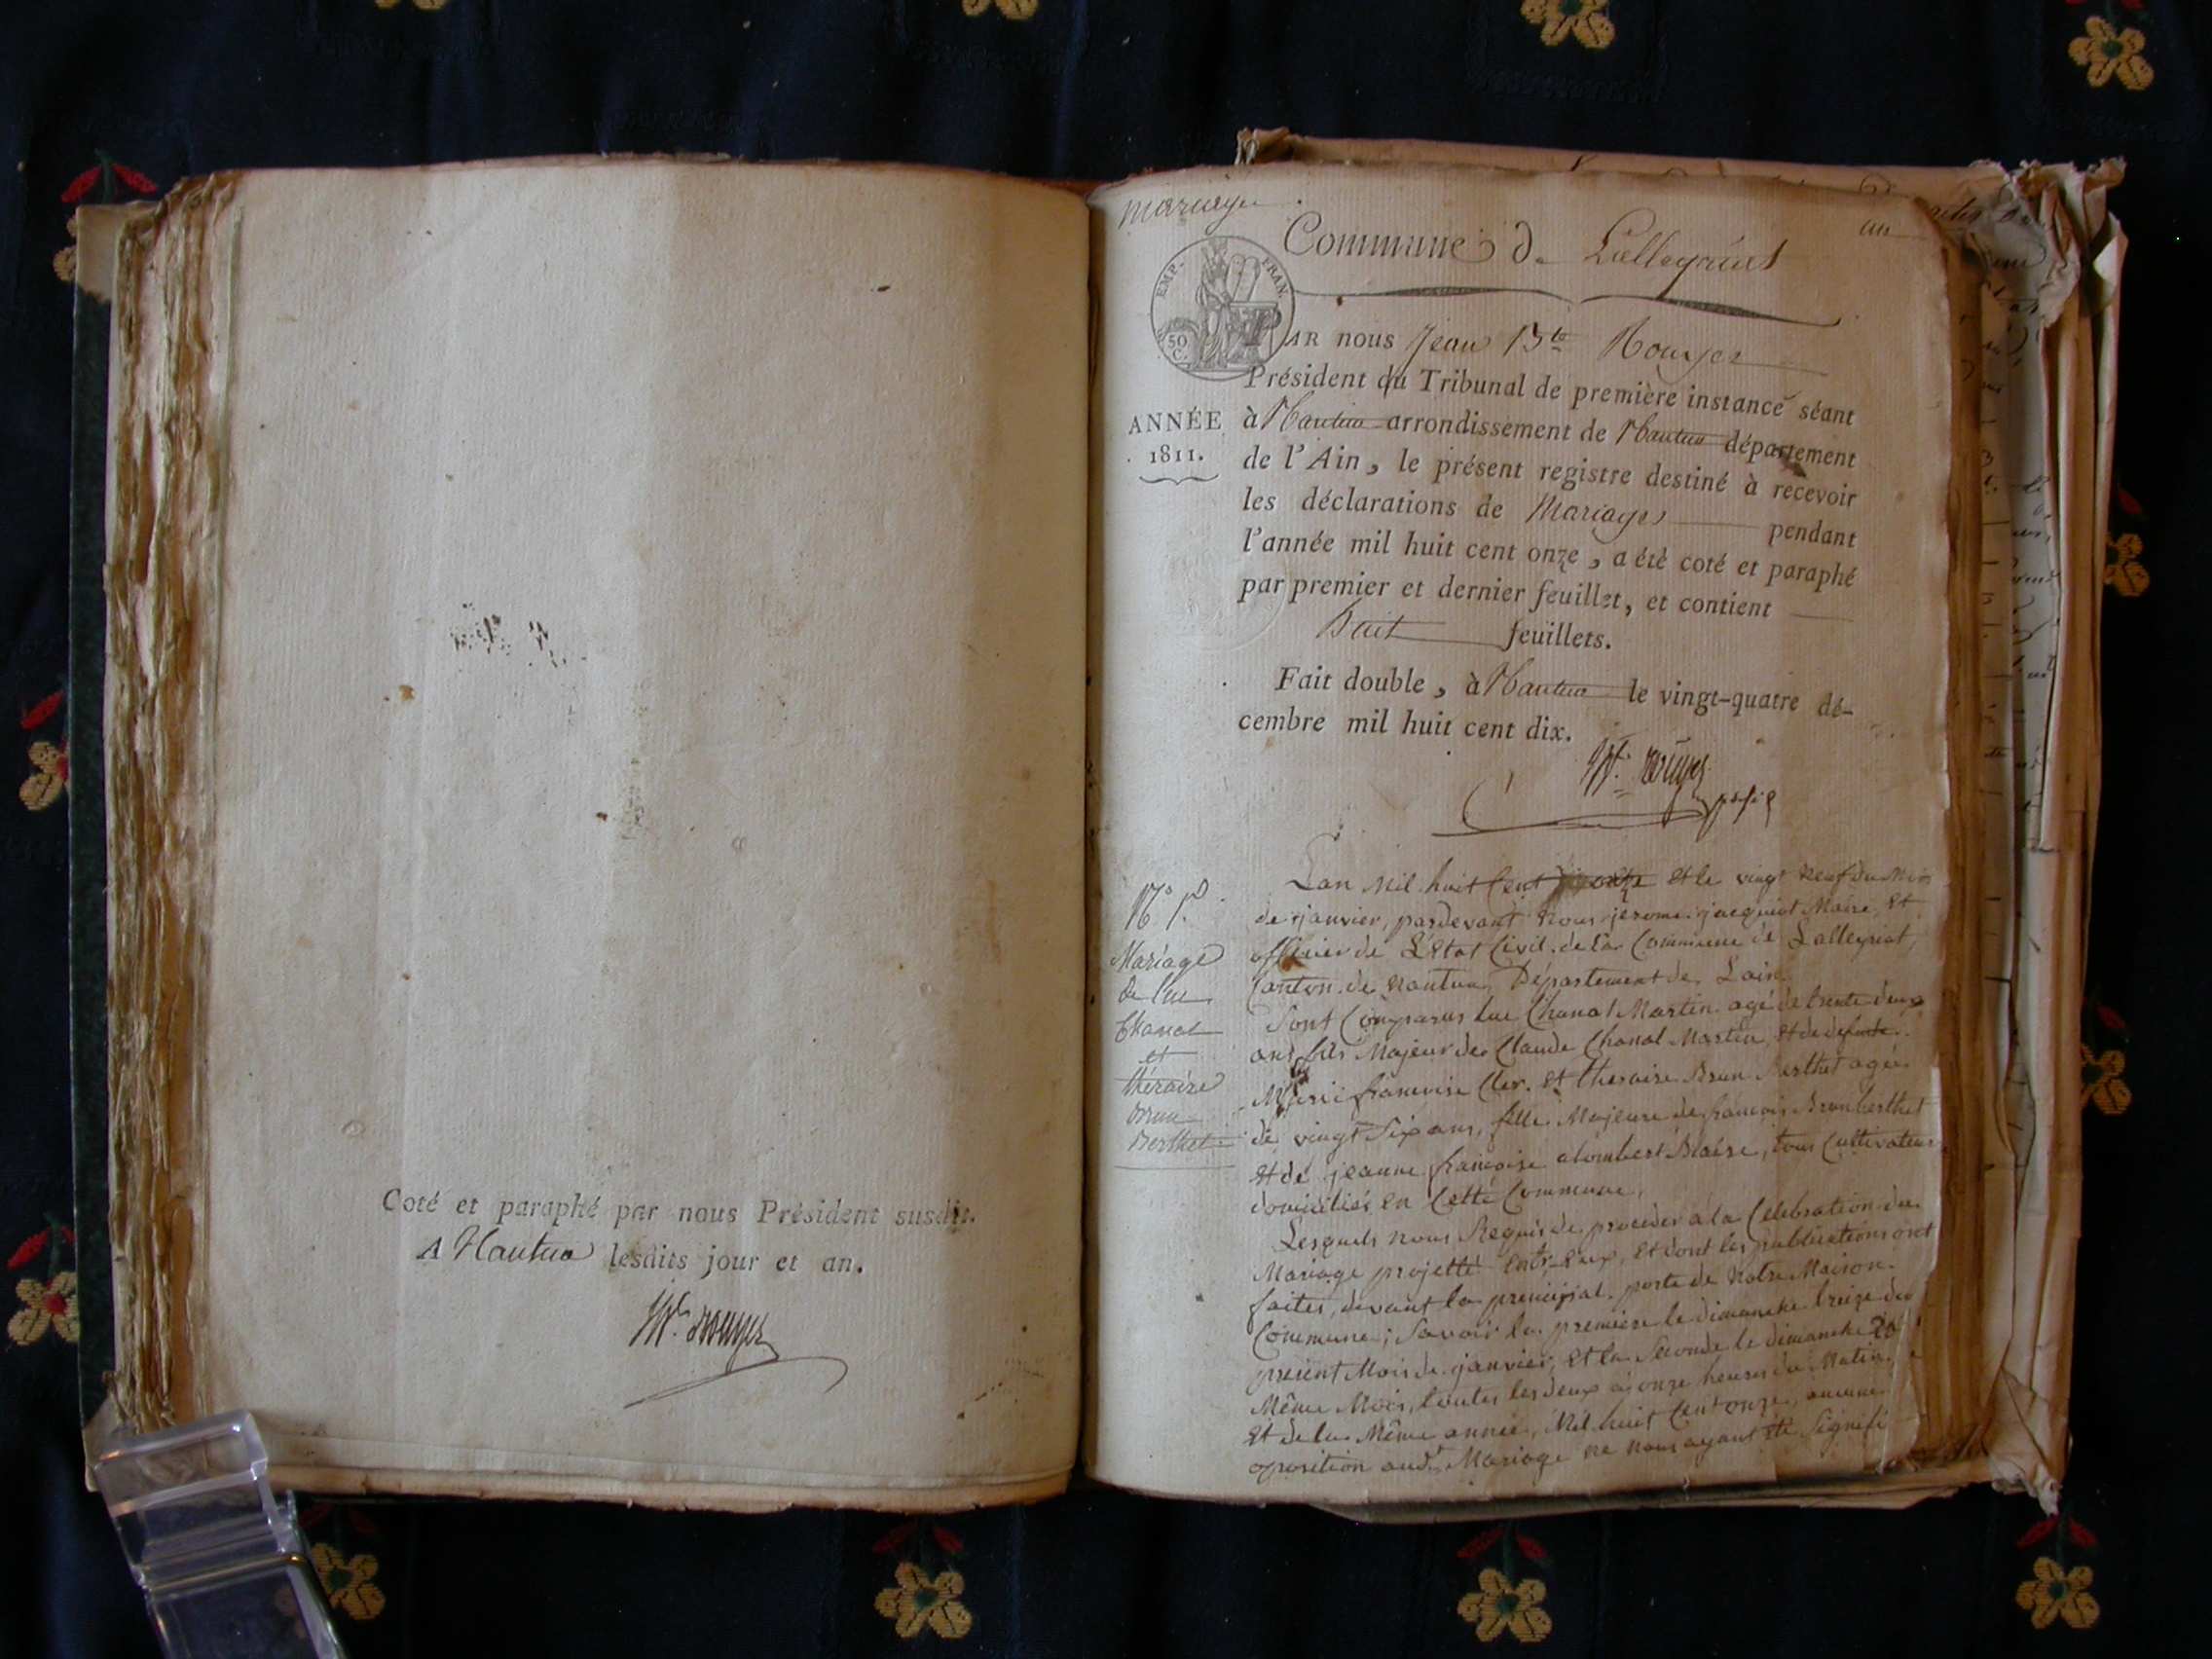 Coté et paraphé par nous Président susdit.
A Nantua lesdits jour et an.
Jh. Rouyer
mariage
an
Commune de Lalleyriat
EMP. FRAN.
50 C.
PAR nous Jean Bte Rouyer
Président du Tribunal de première instance séant
ANNÉE
1811.
à Nantua arrondissement de Nantua département
de l'Ain, le présent registre destiné à recevoir
les déclarations de Mariages pendant
l'année mil huit cent onze, a été coté et paraphé
par premier et dernier feuillet, et contient
huit feuillets.
Fait double, à Nantua le vingt-quatre dé-
cembre mil huit cent dix.
N° 1er
Mariage
de luc
Chanal
et
théraise
Brun
Berthet
Lan Mil huit Cent onze et le vingt neuf du Mois
de janvier, pardevant nous jerome jacquiot Maire, et
officier de L'Etat Civil de la Commune de Lalleyriat,
Canton de nantua, Département de Lain.
Sont Comparus luc Chanal Martin agé de trente deux
ans fils Majeur de Claude Chanal Martin et de defunte
Marie francoise Cler. et theraise Brun Berthet agée
de vingt Six ans, fille Majeure de francois Brun berthet
et de jeanne francoise alombert Blaise, tous Cultivateurs
domiciliés en Cette Commune,
Lesquels nous Requis de proceder à la Celebration du
Mariage projetté entr-eux, et dont les publications ont
faites, devant la principal porte de notre Maison
Commune; Savoir la premiere le dimanche treize du
present Mois de janvier, et la Seconde le dimanche 20
Même Mois, toutes les deux à onze heures du Matin,
et de la Même année, Mil huit Cent onze, aucune
oposition audt Mariage ne nous ayant été Signifi